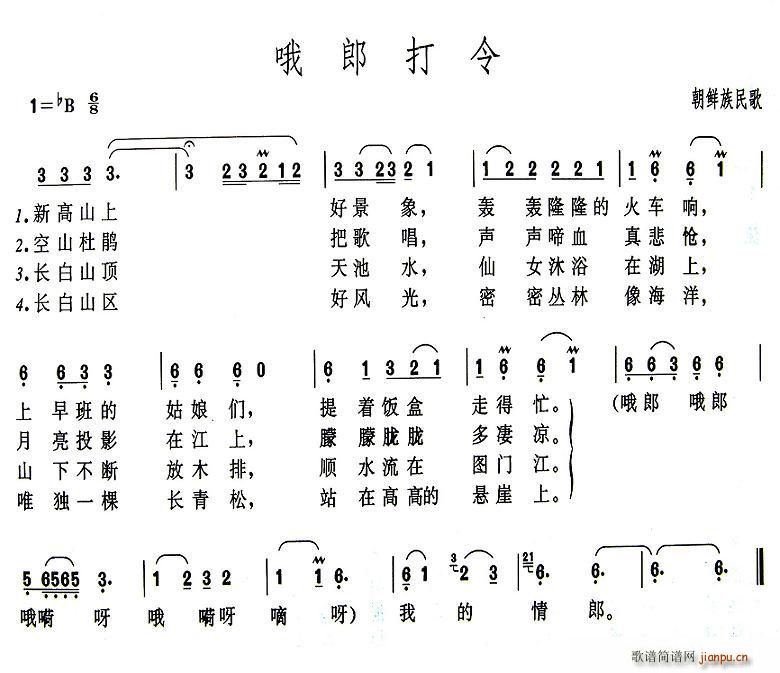 哦郎打令
1=♭B 6/8
朝鲜族民歌
3 3 3 3. 3 2 3 2 1 2 3 3 2 3 2 1 1 2 2 2 2 1 1 6 6 1
1.新高山上 好景象, 轰 轰隆隆的 火车响,
2.空山杜鹃 把歌唱, 声 声啼血 真悲怆,
3.长白山顶 天池水, 仙 女沐浴 在湖上,
4.长白山区 好风光, 密 密丛林 像海洋,
6 6 3 3 6 6 6 0 6 1 3 2 1 1 6 6 1 6 6 3 6 6
上 早班的 姑娘们, 提 着饭盒 走得忙。 (哦郎 哦郎
月 亮投影 在江上, 朦 朦胧胧 多凄凉。
山 下不断 放木排, 顺 水流在 图门江。
唯 独一棵 长青松, 站 在高高的 悬崖上。
5 6 5 6 5 3. 1 2 2 3 2 1 1 6. 6 1 3 2 2 3. 21 6. 6. 6.
哦嗬 呀 哦 嗬呀 嘀 呀) 我 的 情 郎。
歌谱简谱网
jianpu.cn